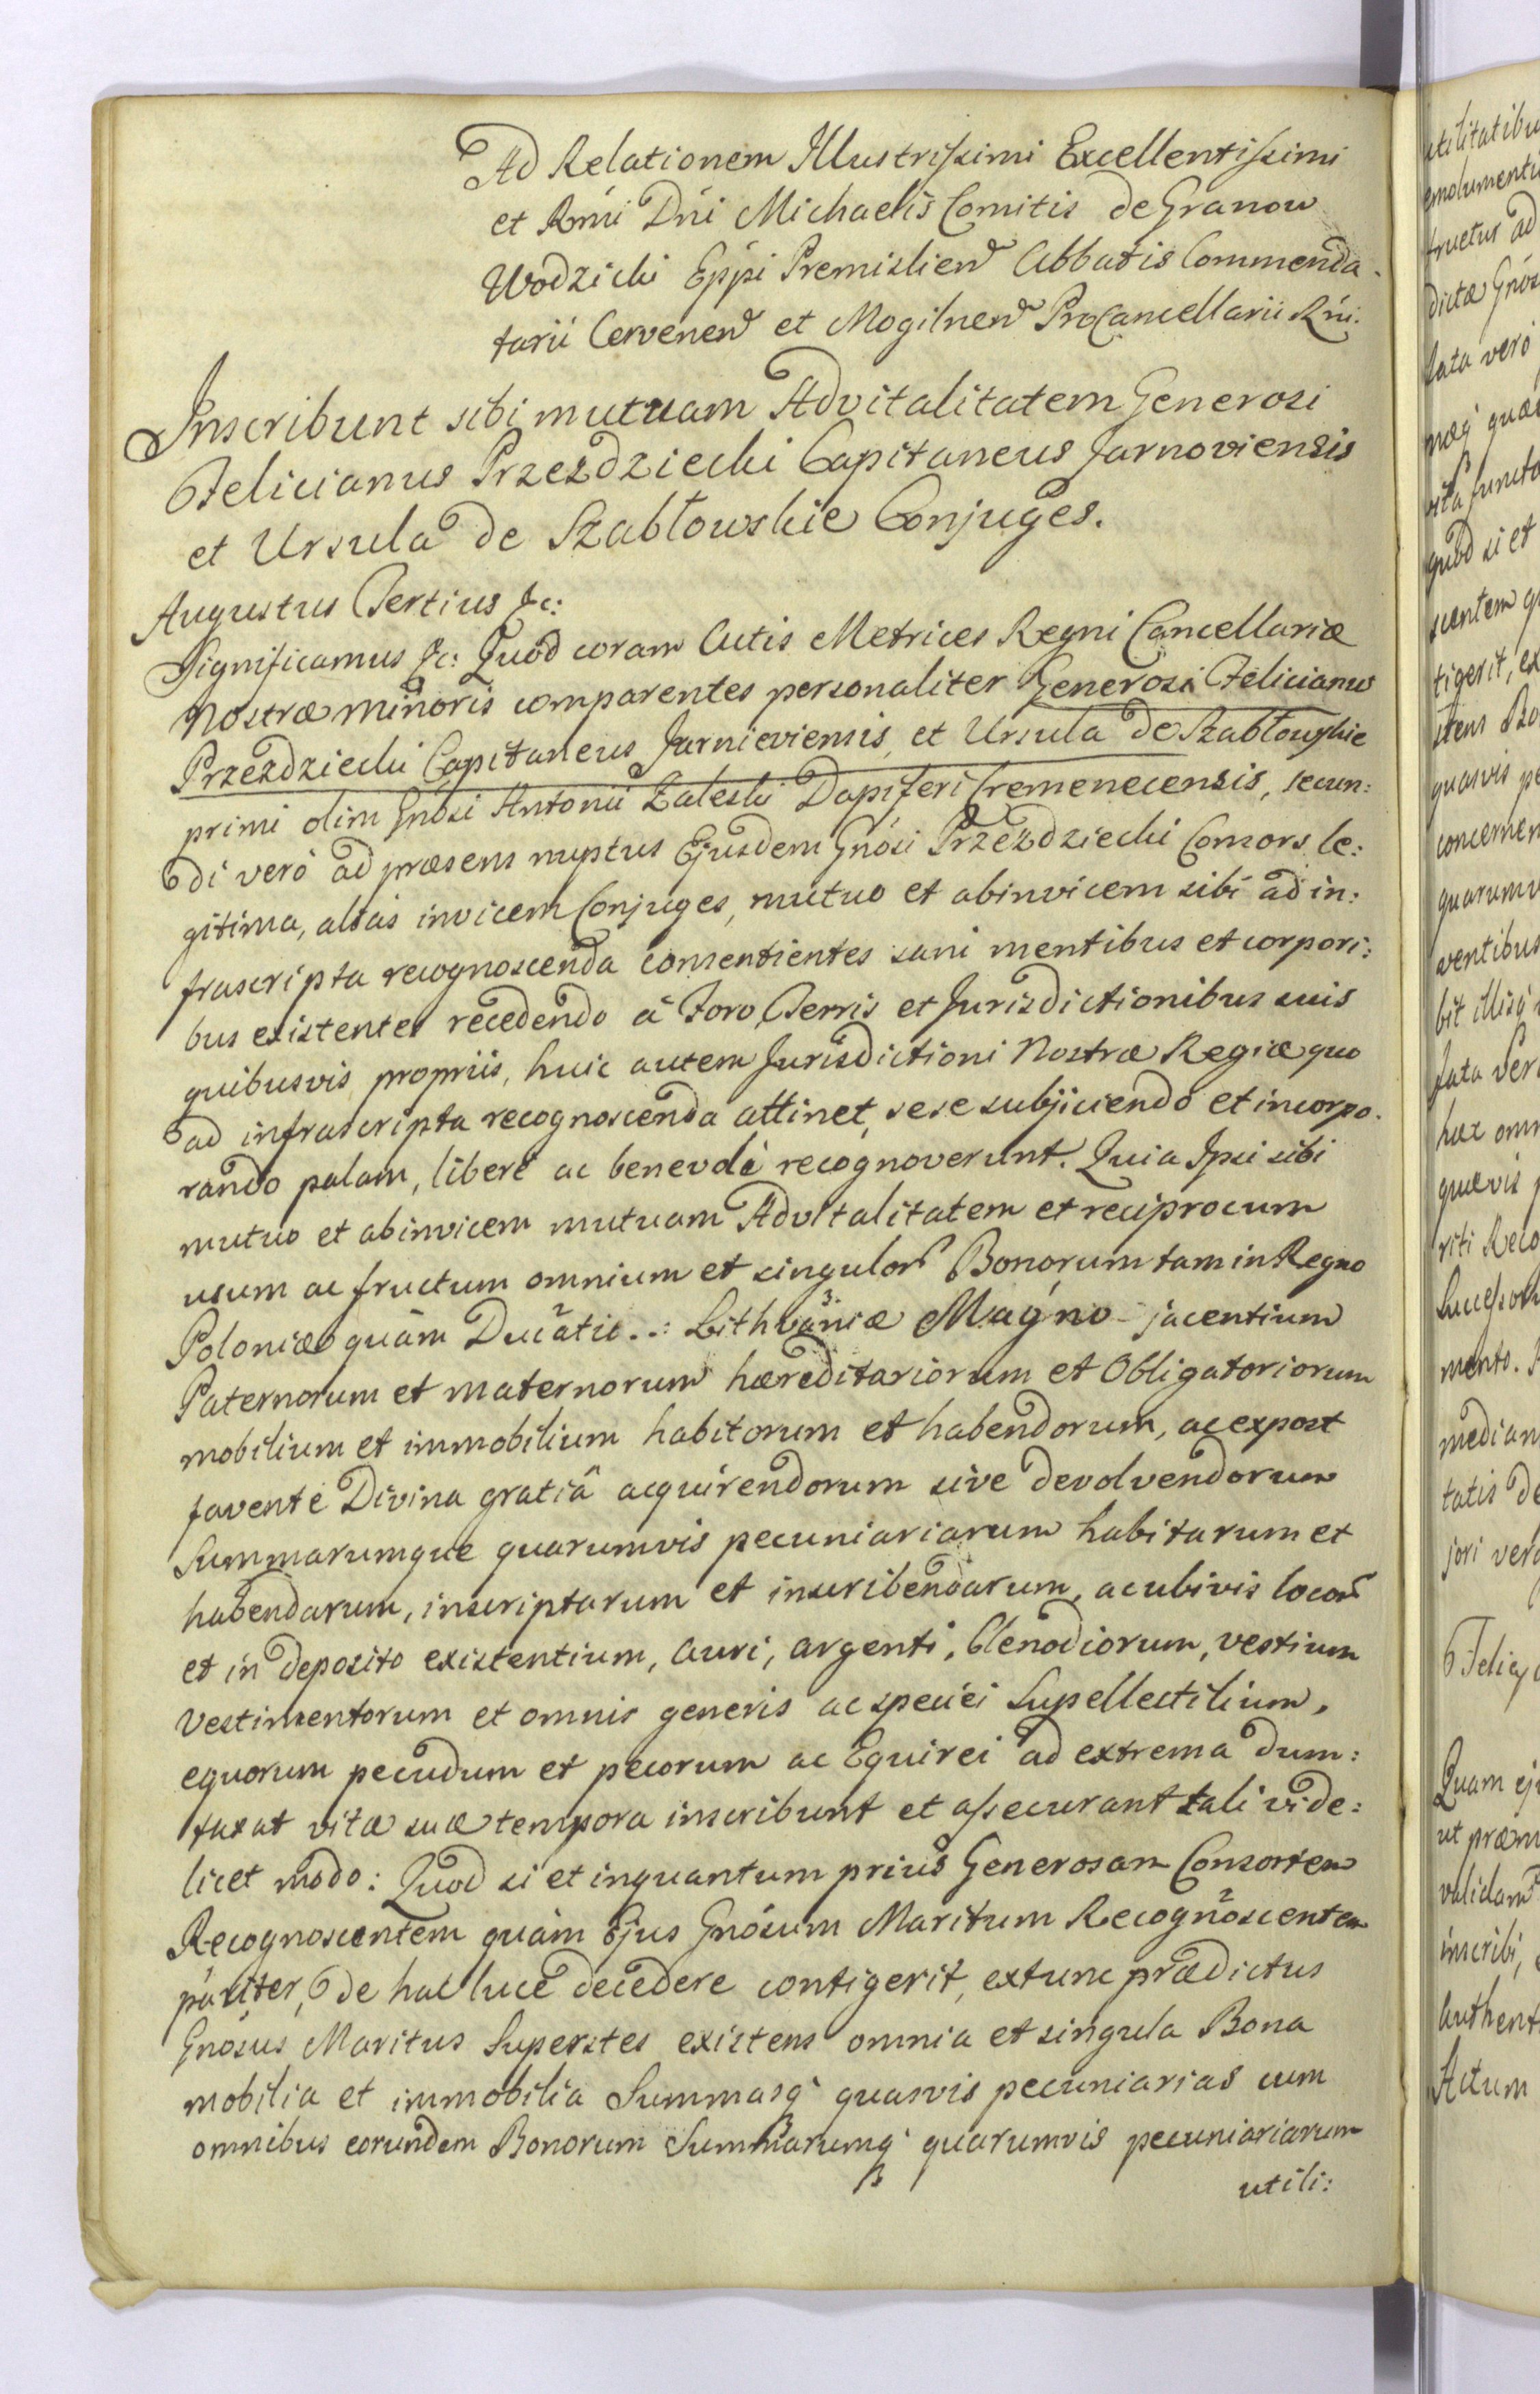 Ad Relationem Illustrissimi Excellentissimi
et Rmi Dni Michaelis Comitis de Granow
Wodzicki Eppi Premislien Abbatis Commenda-
tarii Cervenen et Mogilnen ProCancellarii Rni.
Inscribunt sibi mutuam Advitalitatem Generosi
Felicianus Przezdziecki Capitaneus Jarnoviensis
et Ursula de Szabłowskie Conjuges.
Augustus Tertius &c:
Significamus &c: Quod coram Actis Metrices Regni Cancellariæ
Nostræ minoris comparentes personaliter Generosi Felicianus
Przezdziecki Capitaneus Jarnieviensis, et Ursula de Szabłowskie
primi olim Gnosi Antonii Zaleski Dapiferi Cremenecensis, secun:
di verò ad præsens nuptus Ejusdem Gnósi Przezdziecki Consors le:
gitima, aliàs invicem Conjuges, mutuo et abinvicem sibi ad in:
frascripta recognoscenda consentientes sani mentibus et corpori:
bus existentes recedendo à Foro, Terris et Jurisdictionibus suis
quibusvis propriis, huic autem Jurisdictioni Nostræ Regiæ quo
ad infrascripta recognoscenda attinet, sese subjiciendo et incorpo.
rando palam, liberè ac benevolè recognoverunt. Quia Ipsi sibi
mutuo et abinvicem mutuam Advitalitatem et reciprocum
usum ac fructum omnium et singulor Bonorum tam in Regno
Poloniæ quàm Ducatu..: Lithvaniæ Magno - jacentium
Paternorum et maternorum hæreditariorum et Obligatoriorum
mobilium et immobilium habitorum et habendorum, ac expost
favente Divina gratiâ acquirendorum sive devolvendorum
Summarumque quarumvis pecuniariarum habitarum et
habendarum, inscriptarum et inscribendarum, ac ubivis locor
et in deposito existentium, Auri, argenti, Clenodiorum, vestium
Vestimentorum et omnis generis ac speciei Supellectilium,
equorum pecudum et pecorum ac Equirei ad extrema dum:
taxat vitæ suæ tempora inscribunt et assecurant tali vide:
licet modo: Quod si et inquantum prius Generosam Consortem
Recognoscentem quàm Ejus Gnósum Maritum Recognoscentem
pariter, de hac luce decedere contigerit, extunc prædictus
Gnósus Maritus Superstes existens omnia et singula Bona
mobilia et immobilia Summasq quasvis pecuniarias cum
omnibus eorundem Bonorum Summarumq quarumvis pecuniariarum
utili: